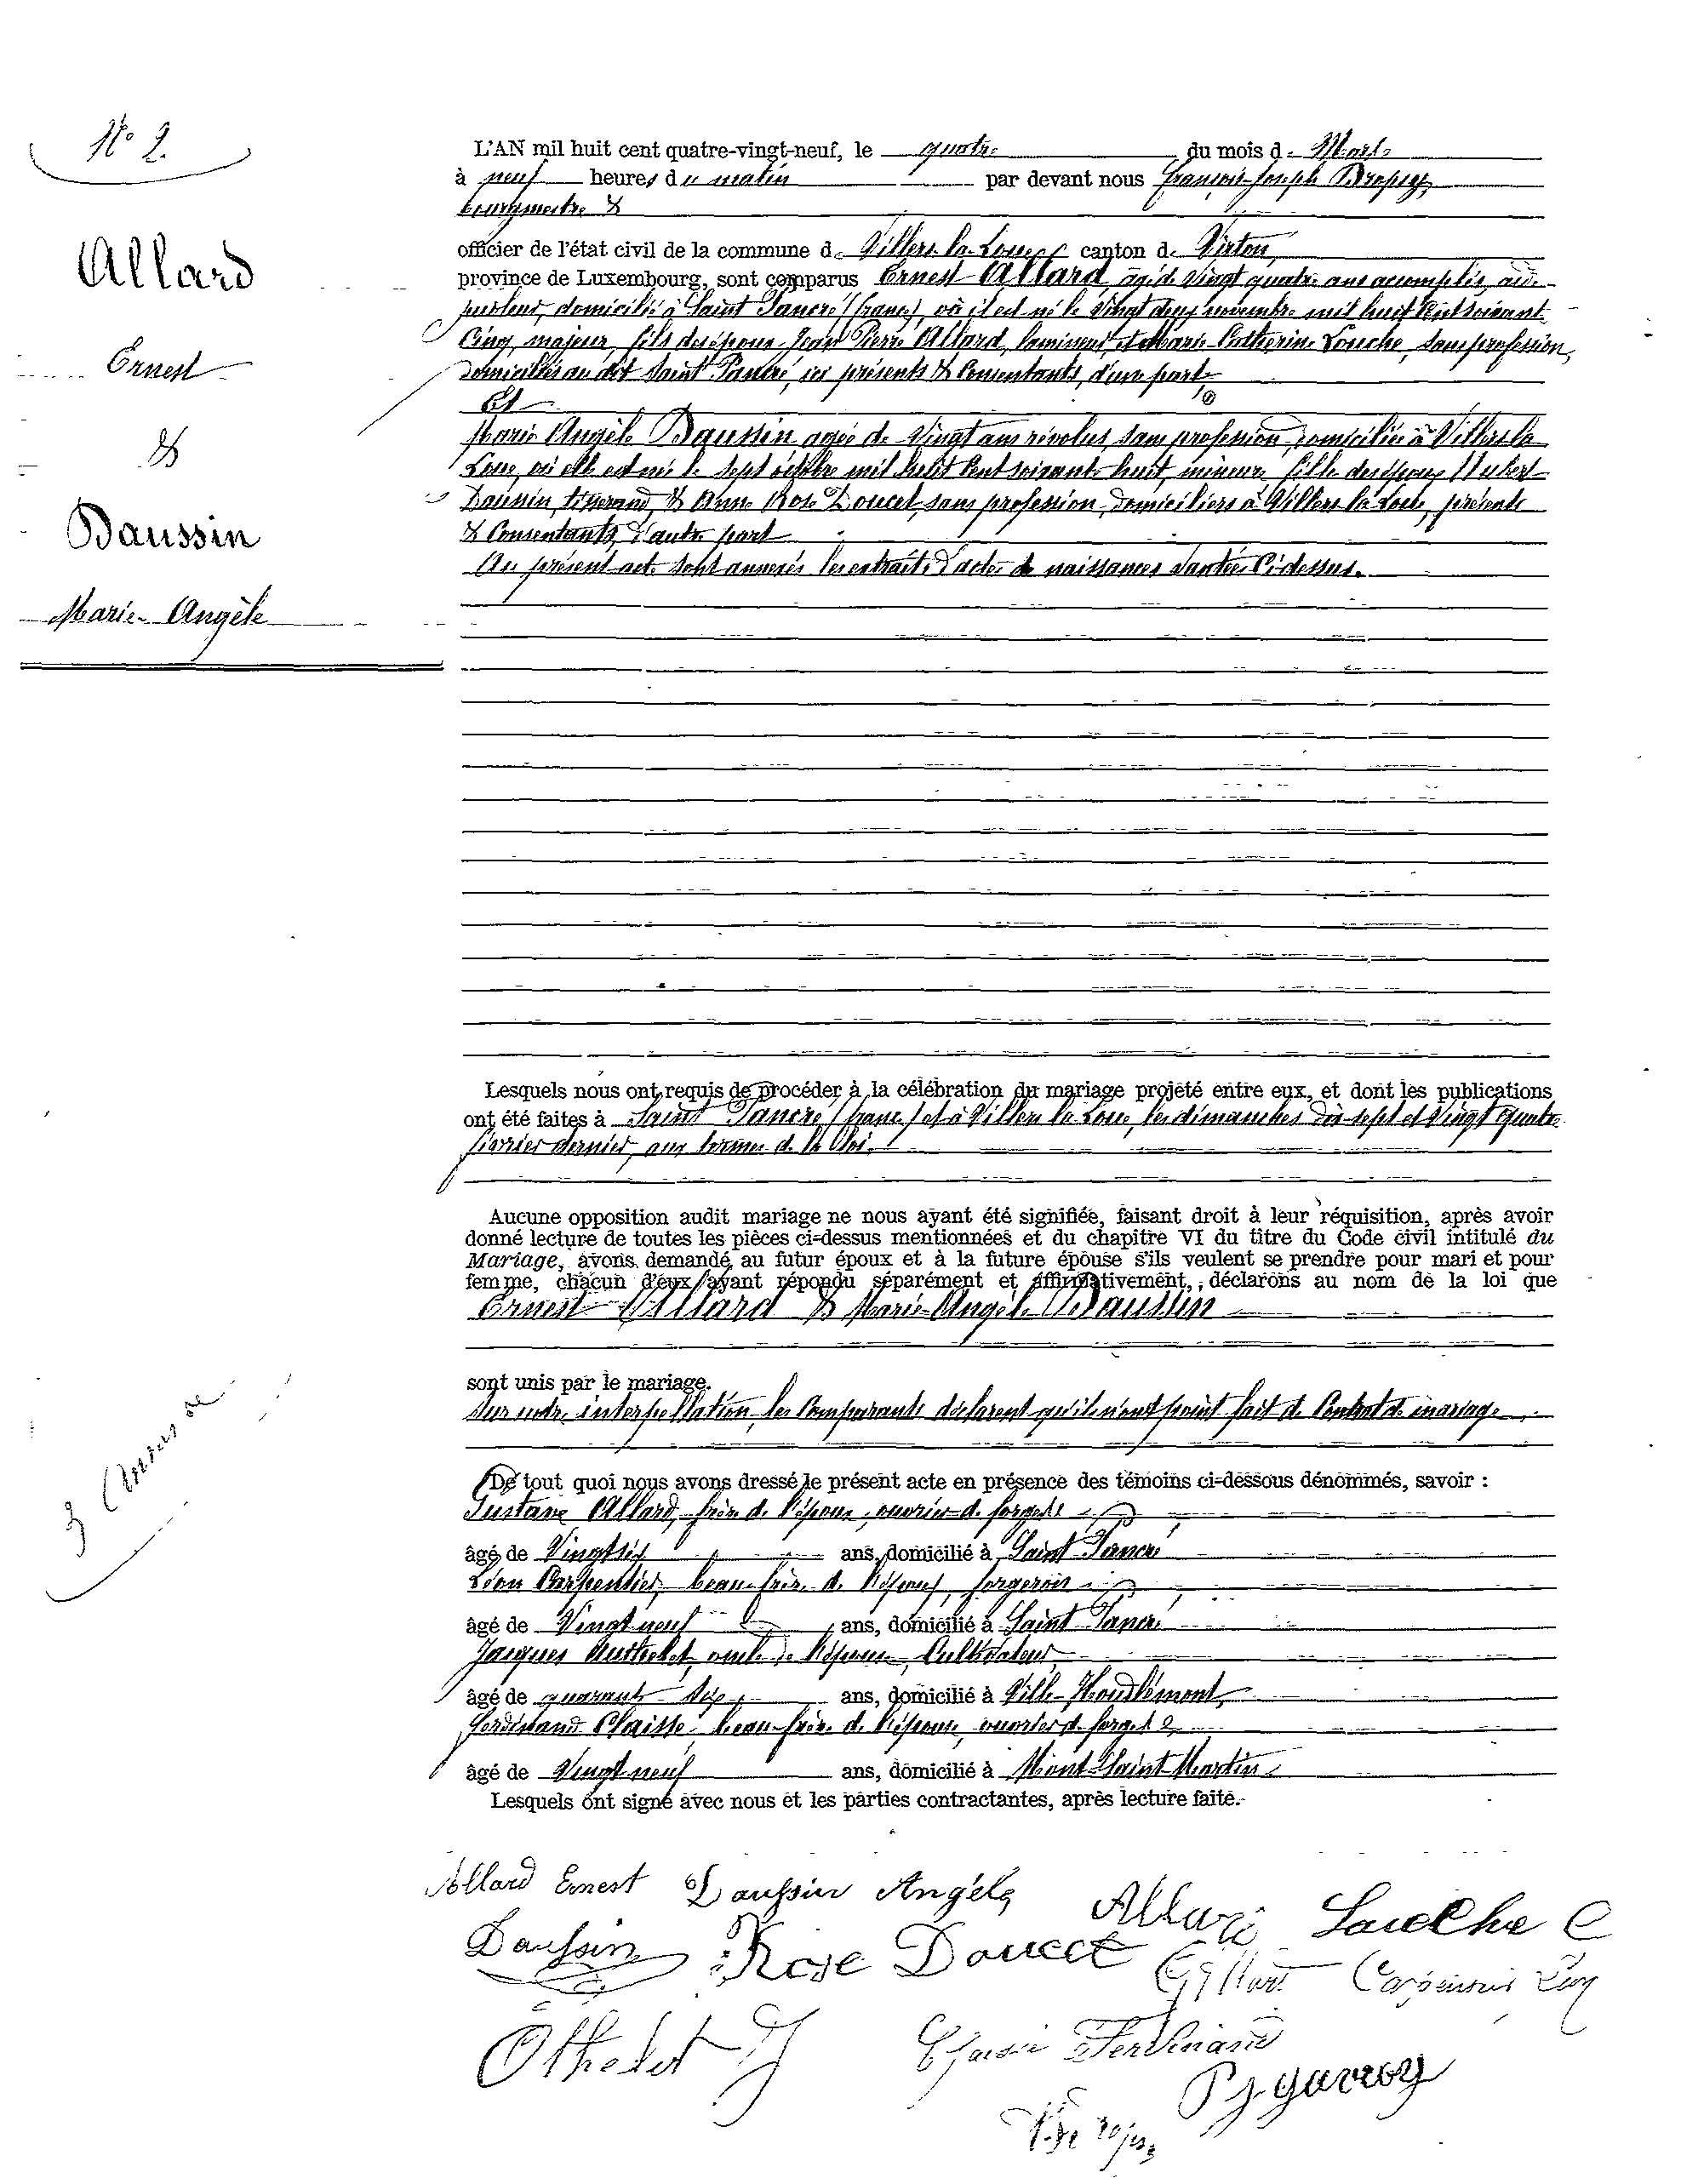 N° 2.
Allard
Ernest
&
Daussin
Marie-Angèle
3 Annexe
L'AN mil huit cent quatre-vingt-neuf, le quatre du mois de Mars
à neuf heures du matin par devant nous François-Joseph
bourgmestre &
officier de l'état civil de la commune de Villers-la-Loue canton de Virton,
province de Luxembourg, sont comparus Ernest Allard, âgé de Vingt quatre ans accomplis,
domicilié à Saint Pancré (france), où il est né le Vingt deux novembre mil huit Cent soixante
Cinq, majeur, fils des époux Jean Pierre Allard, lamineur, et Marie-Catherine Louche, sans profession,
domiciliés au dit Saint Pancré, ici présents & Consentants, d'une part
Et
Marie Angèle Daussin agée de Vingt ans révolus, sans profession, domiciliée à Villers-la
Loue, où elle est née le sept octobre mil huit Cent soixante-huit, mineure, fille des époux Hubert
Daussin, tisserand, & Anne Rose Doucet, sans profession, domiciliés à Villers-la-Loue, présents
& Consentants, d'autre part
Au présent acte sont annexés les extraits d'actes de naissances Ci-dessus.
Lesquels nous ont requis de procéder à la célébration du mariage projeté entre eux, et dont les publications
ont été faites à Saint Pancré (france) et à Villers-la-Loue, les dimanches dix-sept et Vingt quatre
février dernier, aux termes de la Loi.
Aucune opposition audit mariage ne nous ayant été signifiée, faisant droit à leur réquisition, après avoir
donné lecture de toutes les pièces ci-dessus mentionnées et du chapitre VI du titre du Code civil intitulé du
Mariage, avons demandé au futur époux et à la future épouse s'ils veulent se prendre pour mari et pour
femme, chacun d'eux ayant répondu séparément et affirmativement, déclarons au nom de la loi que
Ernest Allard & Marie-Angèle Daussin
sont unis par le mariage.
Sur notre interpellation, les Comparants déclarent qu'ils n'ont point fait de Contrat de mariage
De tout quoi nous avons dressé le présent acte en présence des témoins ci-dessous dénommés, savoir :
Gustave Allard, frère de l'époux, ouvrier de forges
âgé de Vingt six ans, domicilié à Saint Pancré
Léon Carpentier, beau-frère de l'époux, forgeron
âgé de Vingt neuf ans, domicilié à Saint Pancré
Jacques oncle de l'épouse, Cultivateur
âgé de quarante six ans, domicilié à Ville-Houdlémont,
Ferdinand Claisse, beau-frère de l'épouse, ouvrier de forges
âgé de Vingt neuf ans, domicilié à Mont-Saint-Martin
Lesquels ont signé avec nous et les parties contractantes, après lecture faite.
Allard Ernest Daussin Angèle Allard Louche C
Daussin Rose Doucet G Allard Carpentier Léon
Othelet J Claisse Ferdinand